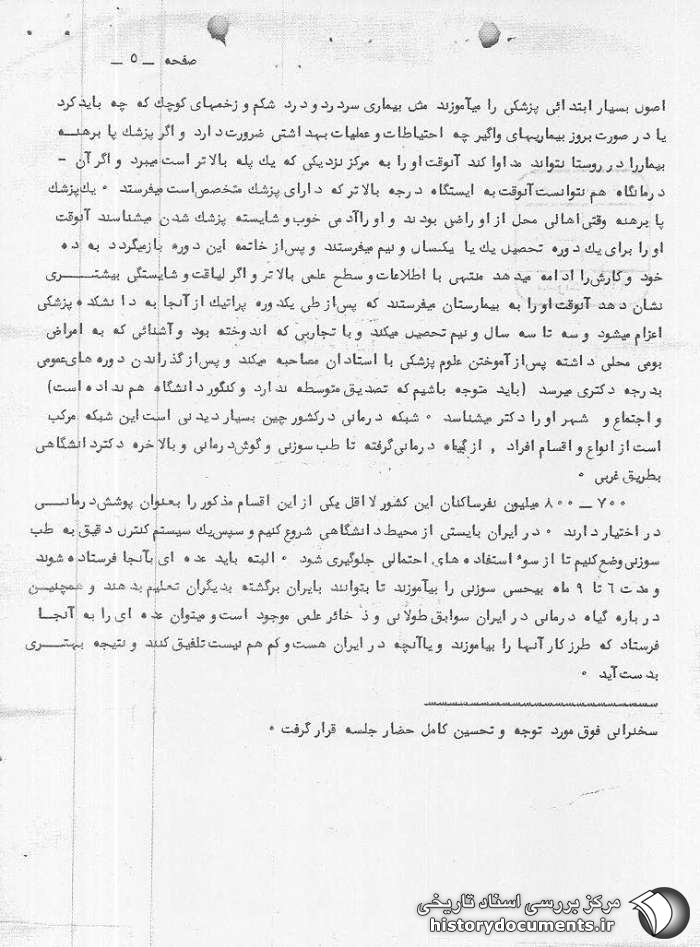 صفحه ــ ٥ ــ
اصول بسیار ابتدائی پزشکی را میآموزند مثل بیماری سردرد و درد شکم و زخمهای کوچك که چه باید کرد
یا در صورت بروز بیماریهای واگیر چه احتیاطات و عملیات بهداشتی ضرورت دارد و اگر پزشك پا برهنه
بیماررا در روستا نتواند مداوا کند آنوقت او را به مرکز نزدیکی که یك پله بالاتر است میبرد و اگر آن -
درمانگاه هم نتوانست آنوقت به ایستگاه درجه بالاتر که دارای پزشك متخصص است میفرستد ٠ یك پزشك
پا برهنه وقتی اهالی محل از او راضی بودند و او را آدمی خوب و شایسته پزشك شدن میشناسند آنوقت
او را برای یك دوره تحصیل یك یا یکسال و نیم میفرستند و پس از خاتمه این دوره بازمیگردد به ده
خود و کارش را ادامه میدهد منتهی با اطلاعات و سطح علمی بالاتر و اگر لیاقت و شایستگی بیشتری
نشان دهد آنوقت او را به بیمارستان میفرستند که پس از طی یکدوره پراتیك از آنجا به دانشکده پزشکی
اعزام میشود و سه تا سه سال و نیم تحصیل میکند و با تجاربی که اندوخته بود و آشنائی که به امراض
بومی محلی داشته پس از آموختن علوم پزشکی با استادان مصاحبه میکند و پس از گذراندن دوره های عمومی
بدرجه دکتری میرسد (باید متوجه باشیم که تصدیق متوسطه ندارد و کنگور دانشگاه هم نداده است)
و اجتماع و شهر او را دکتر میشناسد ٠ شبکه درمانی درکشور چین بسیار دیدنی است این شبکه مرکب
است از انواع و اقسام افراد , از گیاه درمانی گرفته تا طب سوزنی و گوش درمانی و بالاخره دکتردانشگاهی
بطریق غربی ٠
٧٠٠ ــ ٨٠٠ میلیون نفرساکنان این کشور لااقل یکی از این اقسام مذکور را بعنوان پوشش درمانی
در اختیار دارند ٠ در ایران بایستی از محیط دانشگاهی شروع کنیم و سپس یك سیستم کنترل دقیق به طب
سوزنی وضع کنیم تا از سوء استفاده های احتمالی جلوگیری شود ٠ البته باید عده ای بآنجا فرستاده شوند
و مدت ٦ تا ٩ ماه بیحسی سوزنی را بیآموزند تا بتوانند بایران برگشته بدیگران تعلیم بدهند و همچنین
درباره گیاه درمانی در ایران سوابق طولانی و ذخائر علمی موجود است و میتوان عده ای را به آنجا
فرستاد که طرز کار آنها را بیاموزند و یاآنچه در ایران هست و کم هم نیست تلفیق کنند و نتیجه بهتری
بدست آید ٠
سخنرانی فوق مورد توجه و تحسین کامل حضار جلسه قرار گرفت ٠
مرکز بررسی اسناد تاریخی
historydocuments.ir